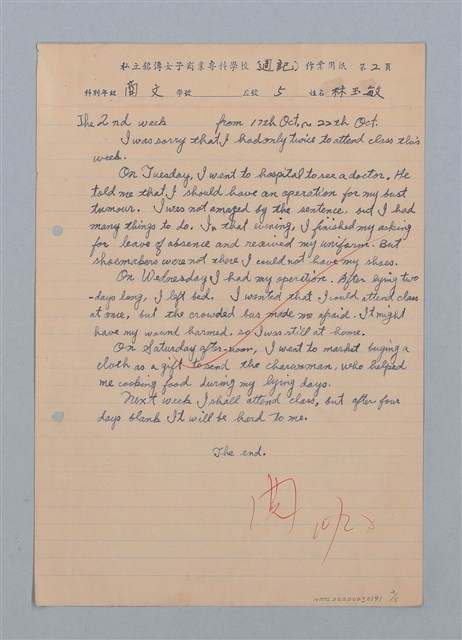 私立銘傳女子商業專科學校（週記）作業用紙 第2頁
科別年級 商文 學號 座號 5 姓名 林玉敏
The 2nd week from 17th Oct. ~ 22th Oct.
I was sorry that I had only twice to attend class this
week.
On Tuesday, I went to hospital to see a doctor. He
told me that I should have an operation for my bust
tumour. I was not amazed by the sentence, but I had
many things to do. In that evening, I finished my asking
for leave of absence and received my uniform. But
shoemakers were not there I could not have my shoes.
On Wednesday I had my operation. After lying two
-days long, I left bed. I wanted that I could attend class
at once, but the crowded bus made me afraid. It might
have my wound harmed, so I was still at home.
On Saturday after-noon, I went to market buying a
cloth as a gift to send the charwoman, who helped
me cooking food during my lying days.
Next week I shall attend class, but after four
days blank It will be hard to me.
The end.
閱 10/25
2/5